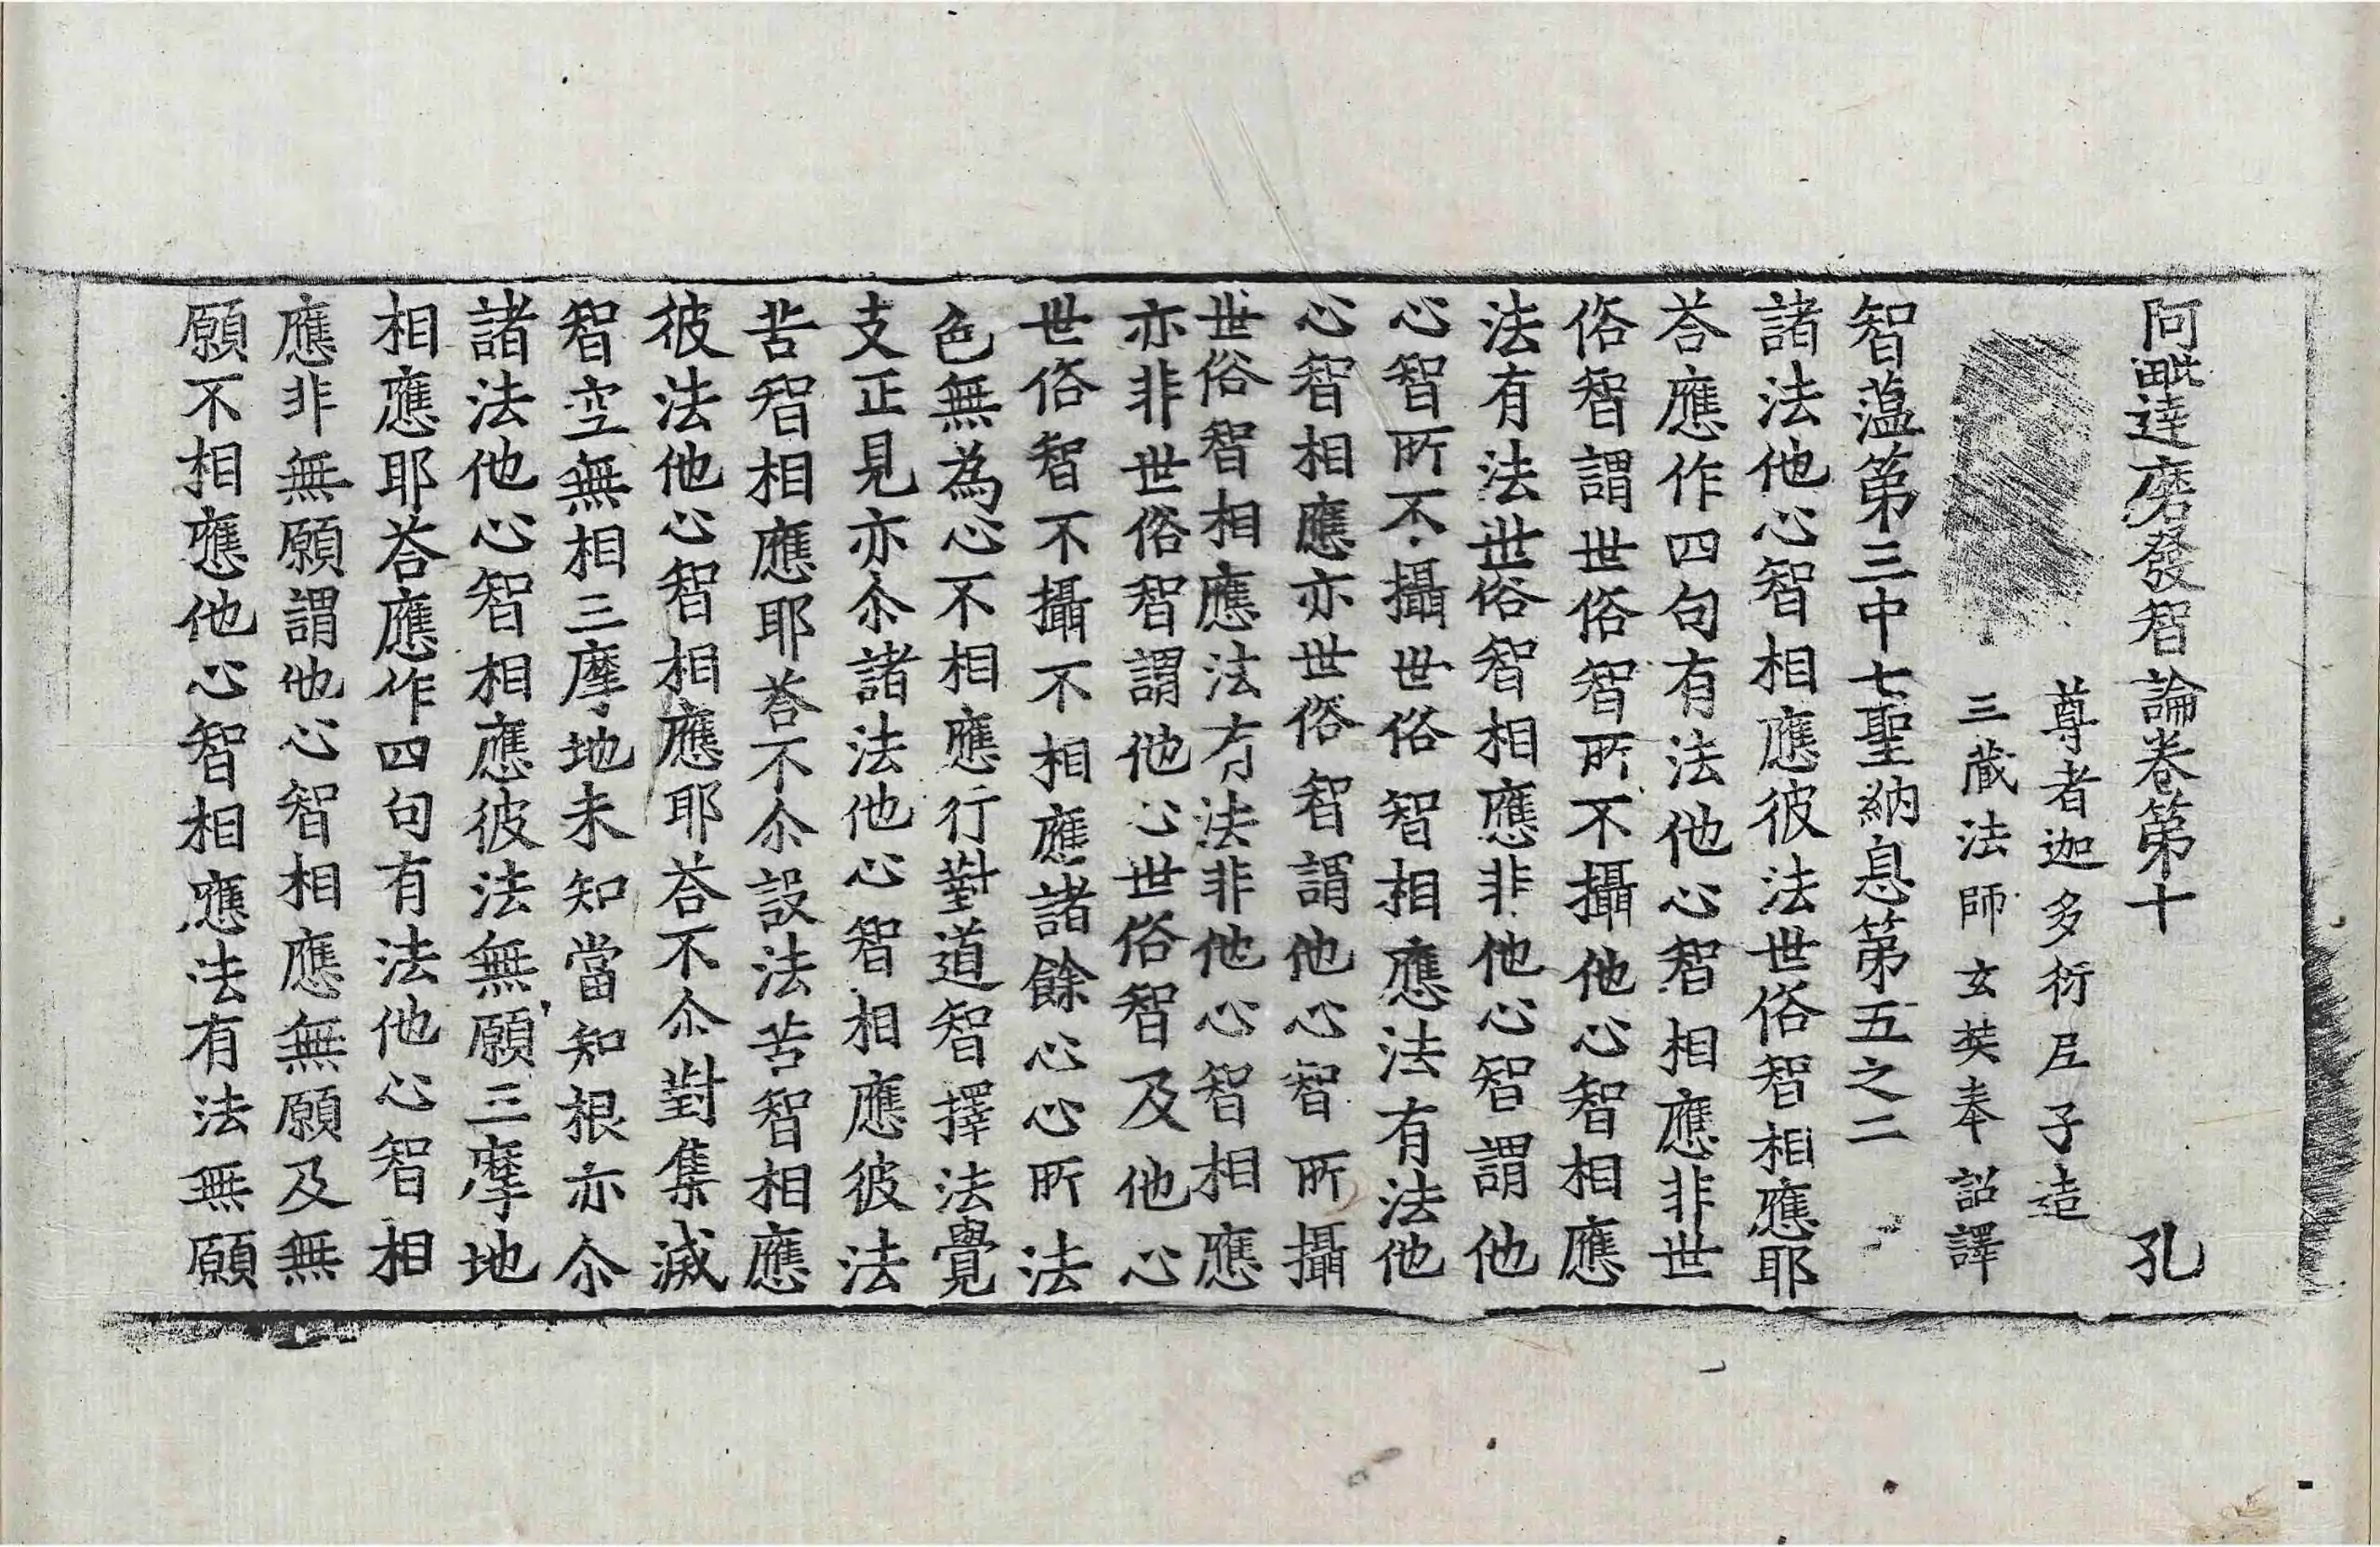 阿毗達磨發智論卷第十 孔
尊者迦多衍𡰱子造
三藏法師玄奘奉詔譯
智蕰第三中七聖納息第五之二
諸法他心智相應彼法世俗智相應耶
荅應作四句有法他心智相應非世
俗智謂世俗智所不攝他心智相應
法有法世俗智相應非他心智謂他
心智所不攝世俗智相應法有法他
心智相應亦世俗智謂他心智所攝
世俗智相應法有法非他心智相應
亦非世俗智謂他心世俗智及他心
世俗智不攝不相應諸餘心心所法
色無為心不相應行對道智擇法覺
支正見亦尒諸法他心智相應彼法
苦智相應耶荅不尒設法苦智相應
彼法他心智相應耶荅不尒對集滅
智空無相三摩地未知當知根亦尒
諸法他心智相應彼法無願三摩地
相應耶荅應作四句有法他心智相
應非無願謂他心智相應無願及無
願不相應他心智相應法有法無願